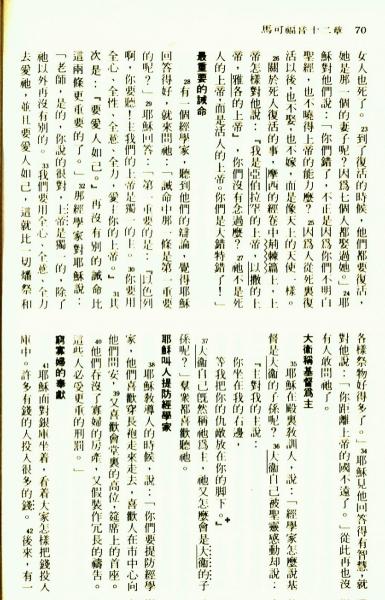 馬可福音十二章 70
女人也死了。23到了復活的時候，他們都要復活，
她是那一個的妻子呢？因爲七個人都娶過她。」24耶
穌對他們說：「你們錯了，不正是因爲你們不明白
聖經，也不曉得上帝的能力麼？25因爲人從死裏復
活以後，也不娶，也不嫁，而是像天上的天使一樣。
26關於死人復活的事，摩西的經卷中荊棘篇上，上
帝怎樣對他說：『我是亞伯拉罕的上帝，以撒的上
帝，雅各的上帝』，你們沒有念過麼？27祂不是死
人的上帝，而是活人的上帝。你們是大錯特錯了！」
最重要的誡命
28有一個經學家，聽到他們的辯論，覺得耶穌
回答得好，就來問祂：「誡命中那一條是第一重要
的呢？」29耶穌回答：「第一重要的是：『以色列
啊，你要聽！主我們的上帝是獨一的主。30你要用
全心、全性、全意、全力，愛主你的上帝。』31其
次是：『要愛人如己。』再沒有別的誡命比
這兩條更重要的了。」32那經學家對耶穌說：
「老師，是的，你說的很對，上帝是獨一的，除了
祂以外再沒有別的。33我們要用全心、全意、全力
去愛祂，並且要愛人如己，這就比一切燔祭和
各樣祭物好得多了。」34耶穌見他回答得有智慧，就
對他說：「你距離上帝的國不遠了。」從此再也沒
有人敢問祂了。
大衞稱基督爲主
35耶穌在殿裏教訓人，說：「經學家怎麼說基
督是大衞的子孫呢？36大衞自己被聖靈感動却說：
『主對我的主說：
你坐在我的右邊，
等我把你的仇敵放在你的脚下。』
37大衞自己既然稱祂爲主，祂又怎麼會是大衞的子
孫呢？」羣衆都喜歡聽祂。
耶穌叫人提防經學家
38耶穌教導人的時候，說：「你們要提防經學
家，他們喜歡穿長袍走來走去，喜歡人在市中心向
他們問安，39又喜歡會堂裏的高位，筵席上的首座。
40他們吞沒了寡婦的房產，又假裝作冗長的禱告。
這些人必受更重的刑罰。」
窮寡婦的奉獻
41耶穌面對銀庫坐着，看着大家怎樣把錢投入
庫中。許多有錢的人投入很多的錢。42後來，有一